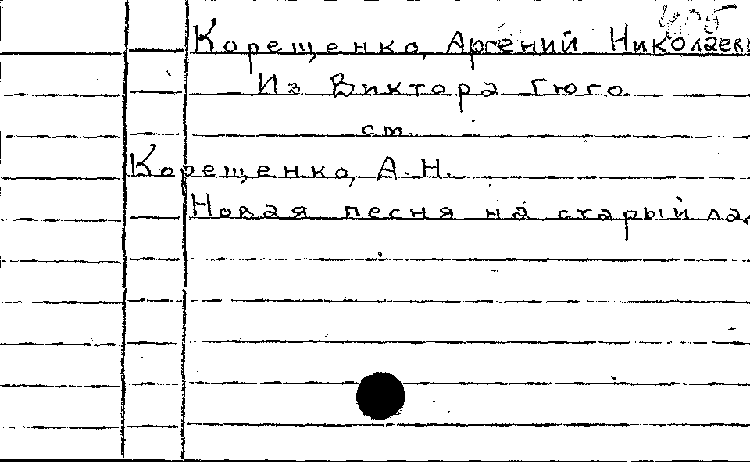 Корещенко, Аргений Николаеви
Из Виктора Гюго
см.
Корещенко, А.Н.
Новая песня на старый ла